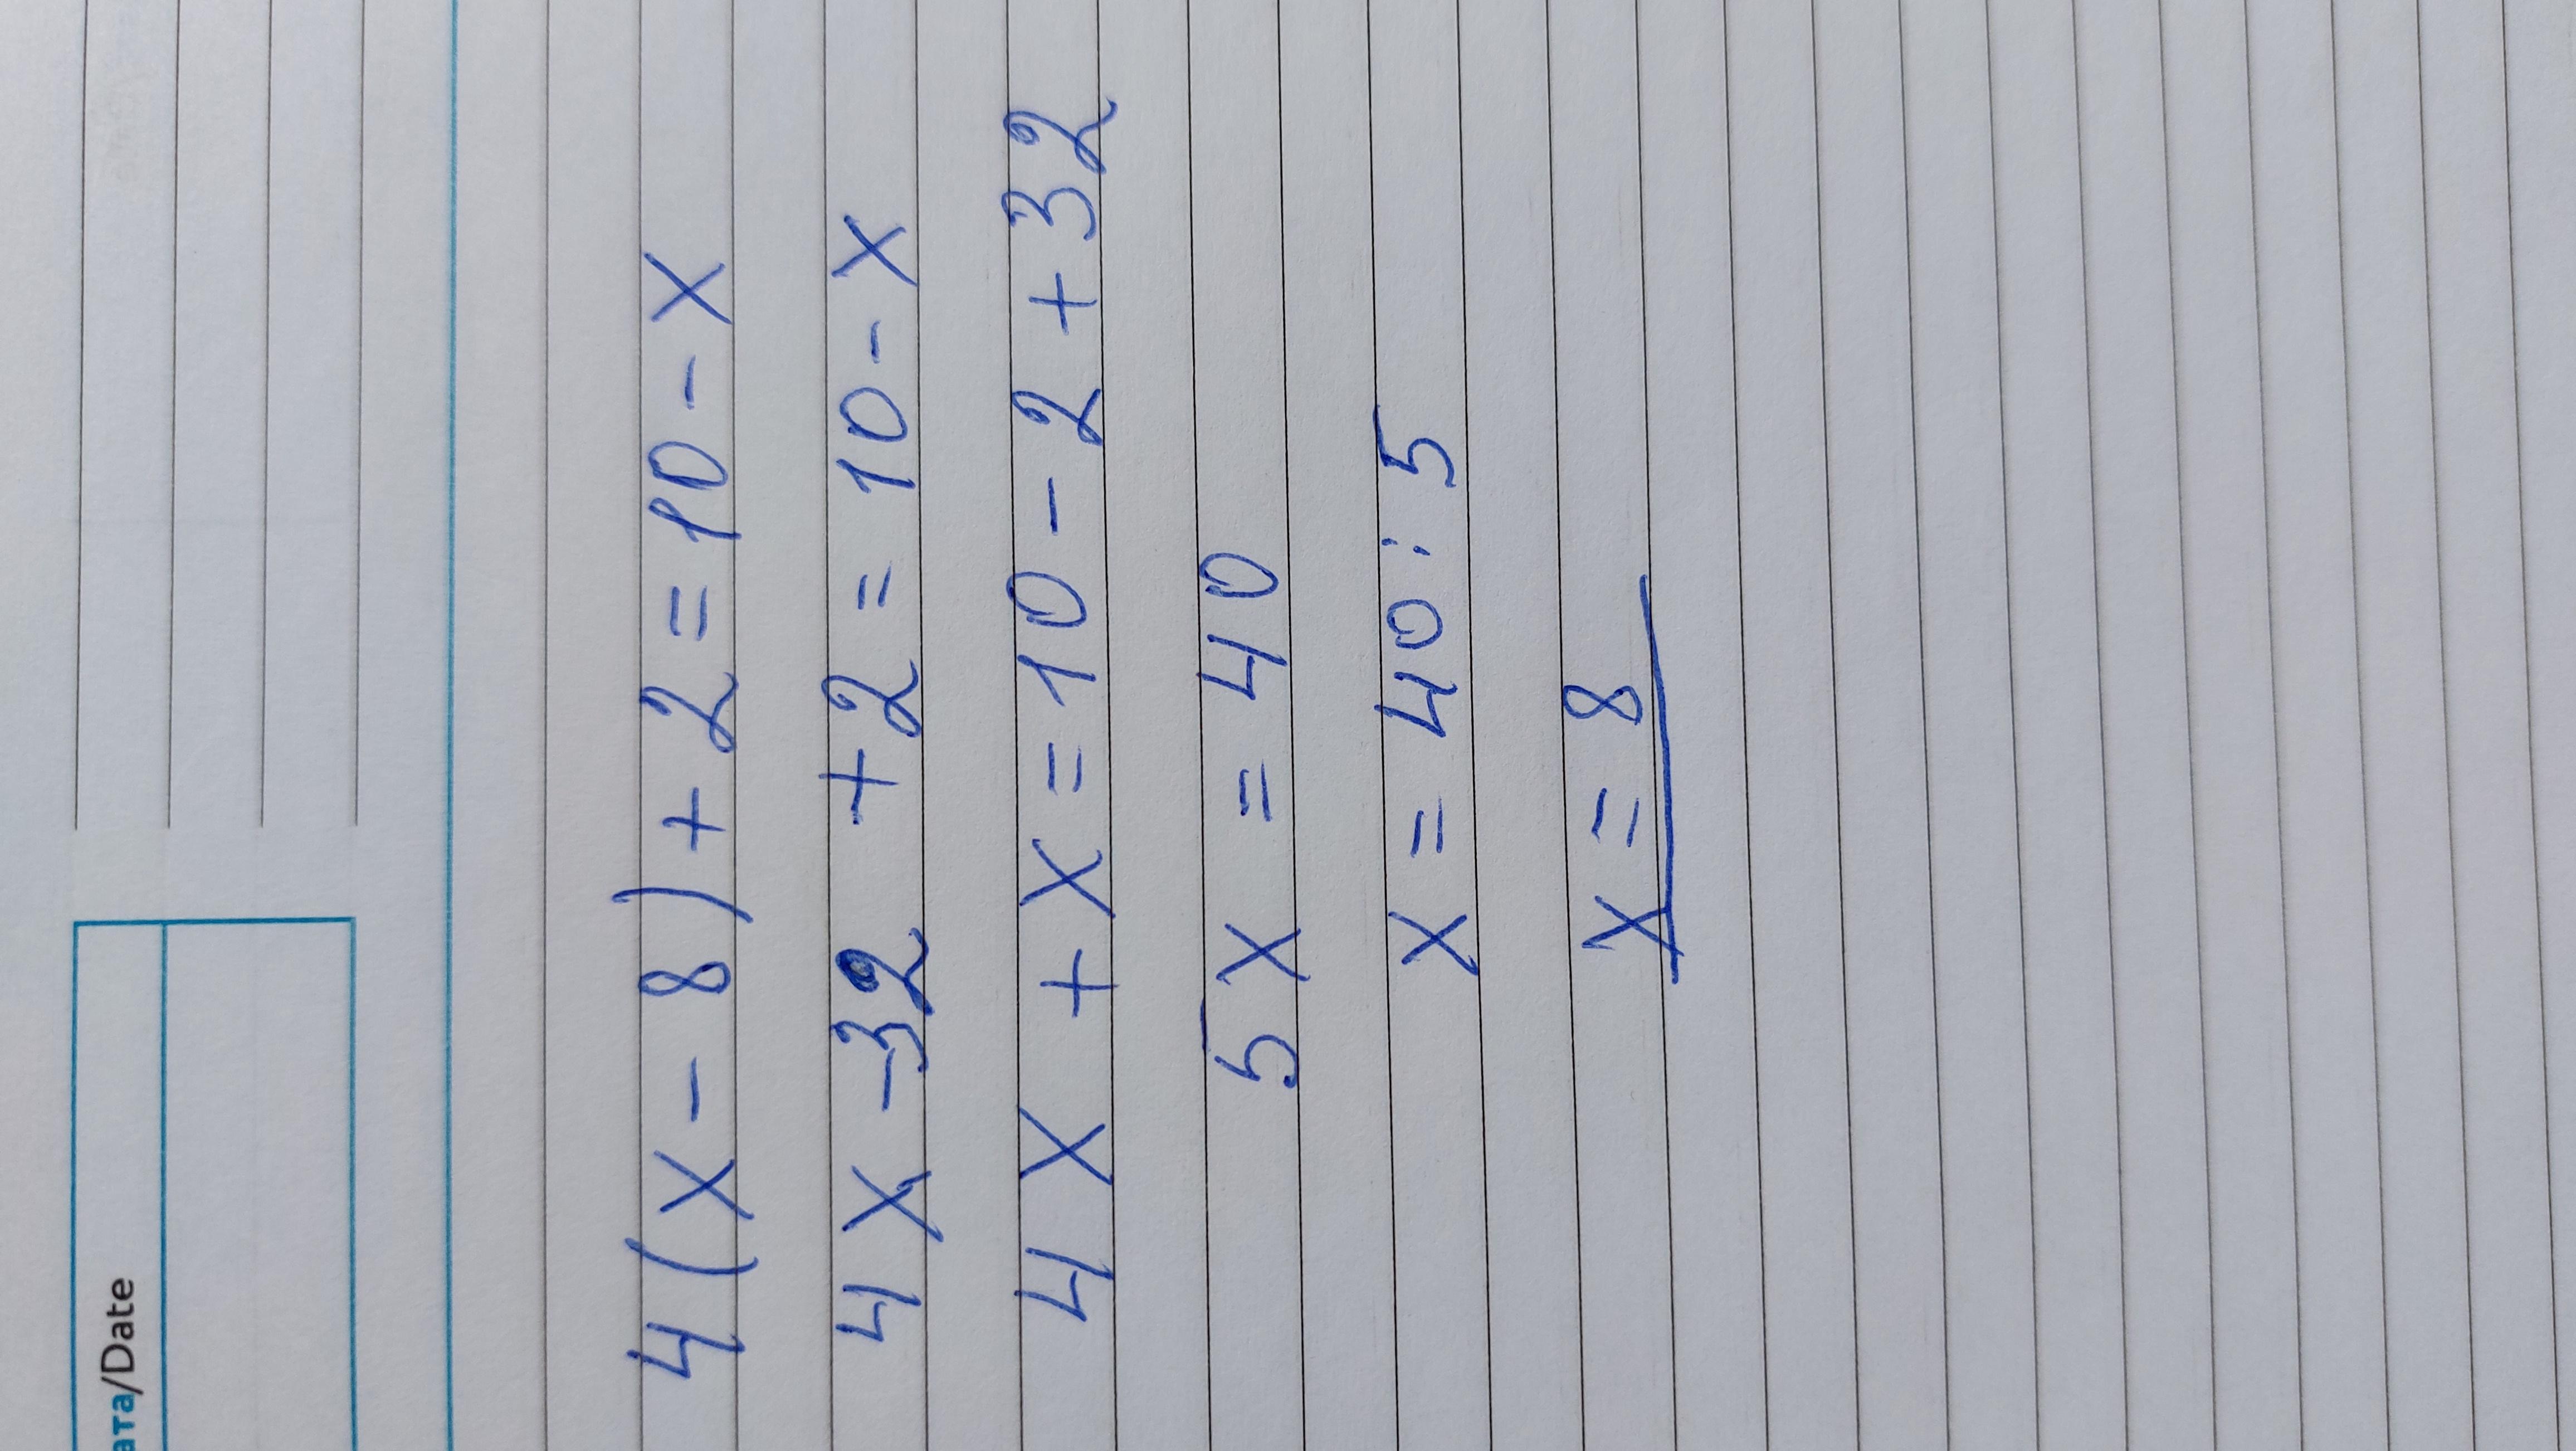 ата/Date
4(x-8)+2=10-x
4x-32 +2=10-x
4x +x=10-2+32
5x = 40
x = 40:5
x = 8